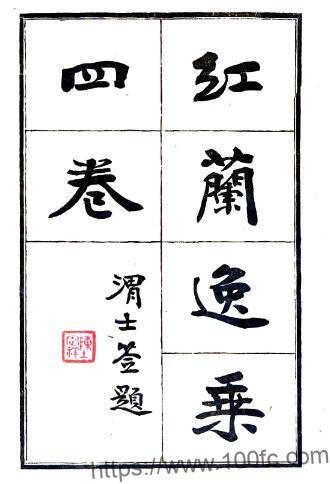 红蘭逸乘
四卷
渭士簽題
https://www.100fc.com